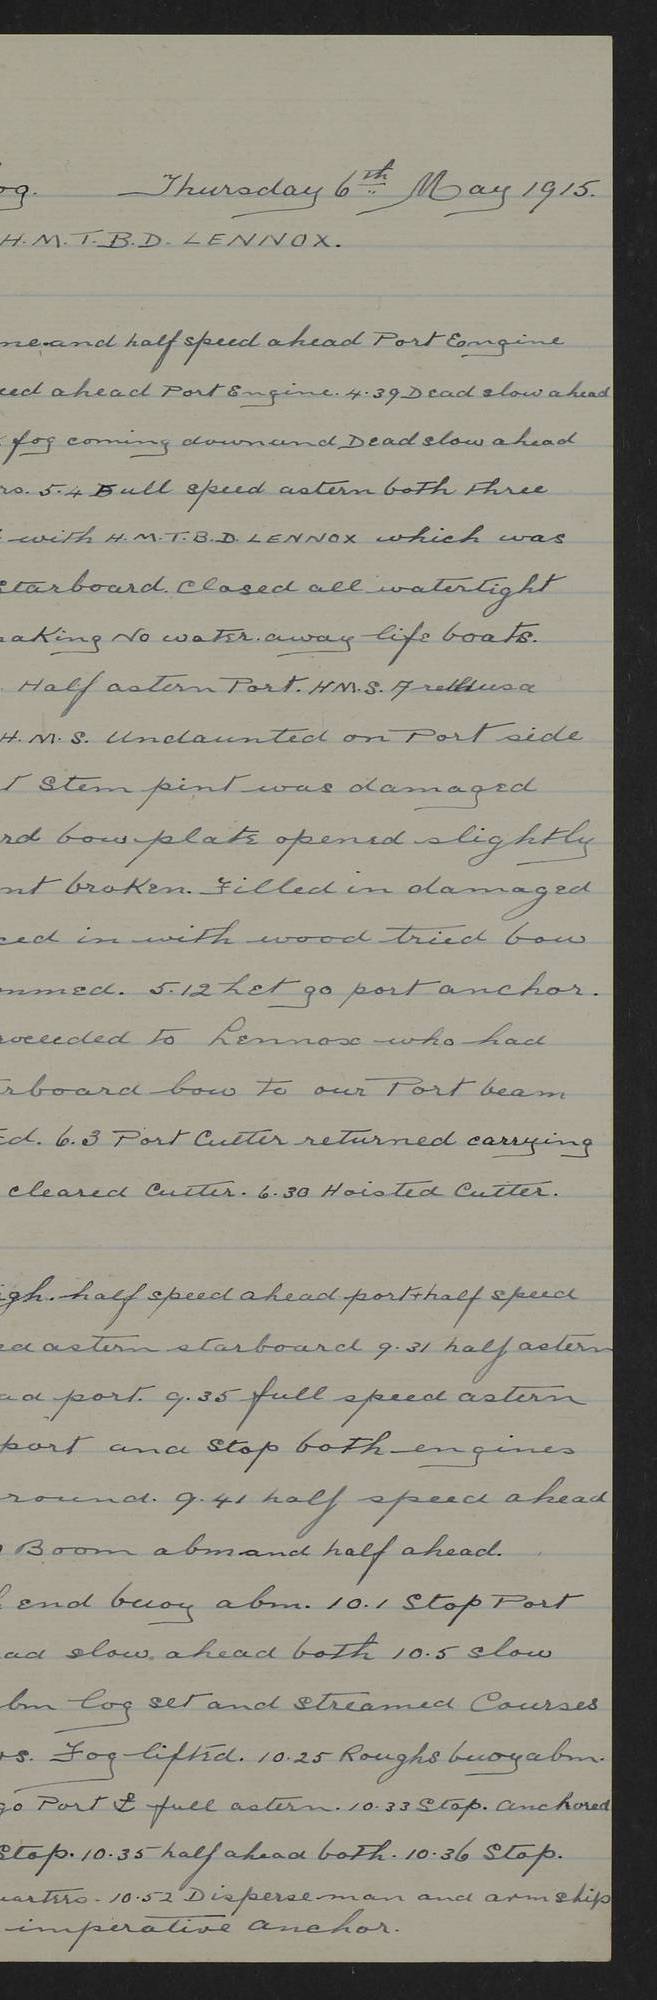 og. Thursday 6th May 1915.
H.M.T.B.D. LENNOX.
ne and half speed ahead Port Eongine
eed ahead Port Engine. 4.39 Dead slow ahead
fog coming down and Dead slow ahead
rs. 5.4 Full speed astern both three
with H.M.T.B.D. LENNOX which was
starboard. Closed all watertight
aking No water. away life boats.
Half astern Port. HM.S. Arethusa
H.M.S. Undaunted on Port side
t Stem pint was damaged
rd bow plate opened slightly
nt broken. Filled in damaged
ced in with wood tried bow
mmed. 5.12 Let go port anchor.
roceeded to Lennox who had
rboard bow to our Port beam
ed. 6.3 Port Cutter returned carrying
cleared Cutter. 6.30 Hoisted Cutter.
igh. half speed ahead port + half speed
ed astern starboard 9.31 half astern
ad port. 9.35 full speed astern
port and Stop both engines
round. 9.41 half speed ahead
Boom abm and half ahead.
end buoy abm. 10.1 Stop Port
ad slow ahead both 10.5 slow
bm log set and streamed Courses
rs. Fog lifted. 10.25 Roughs buoy abm.
go Port & full astern. 10.33 Stop. anchored
Stop. 10.35 half ahead both. 10.36 Stop.
uarters. 10.52 Disperse man and arm ship
imperative anchor.